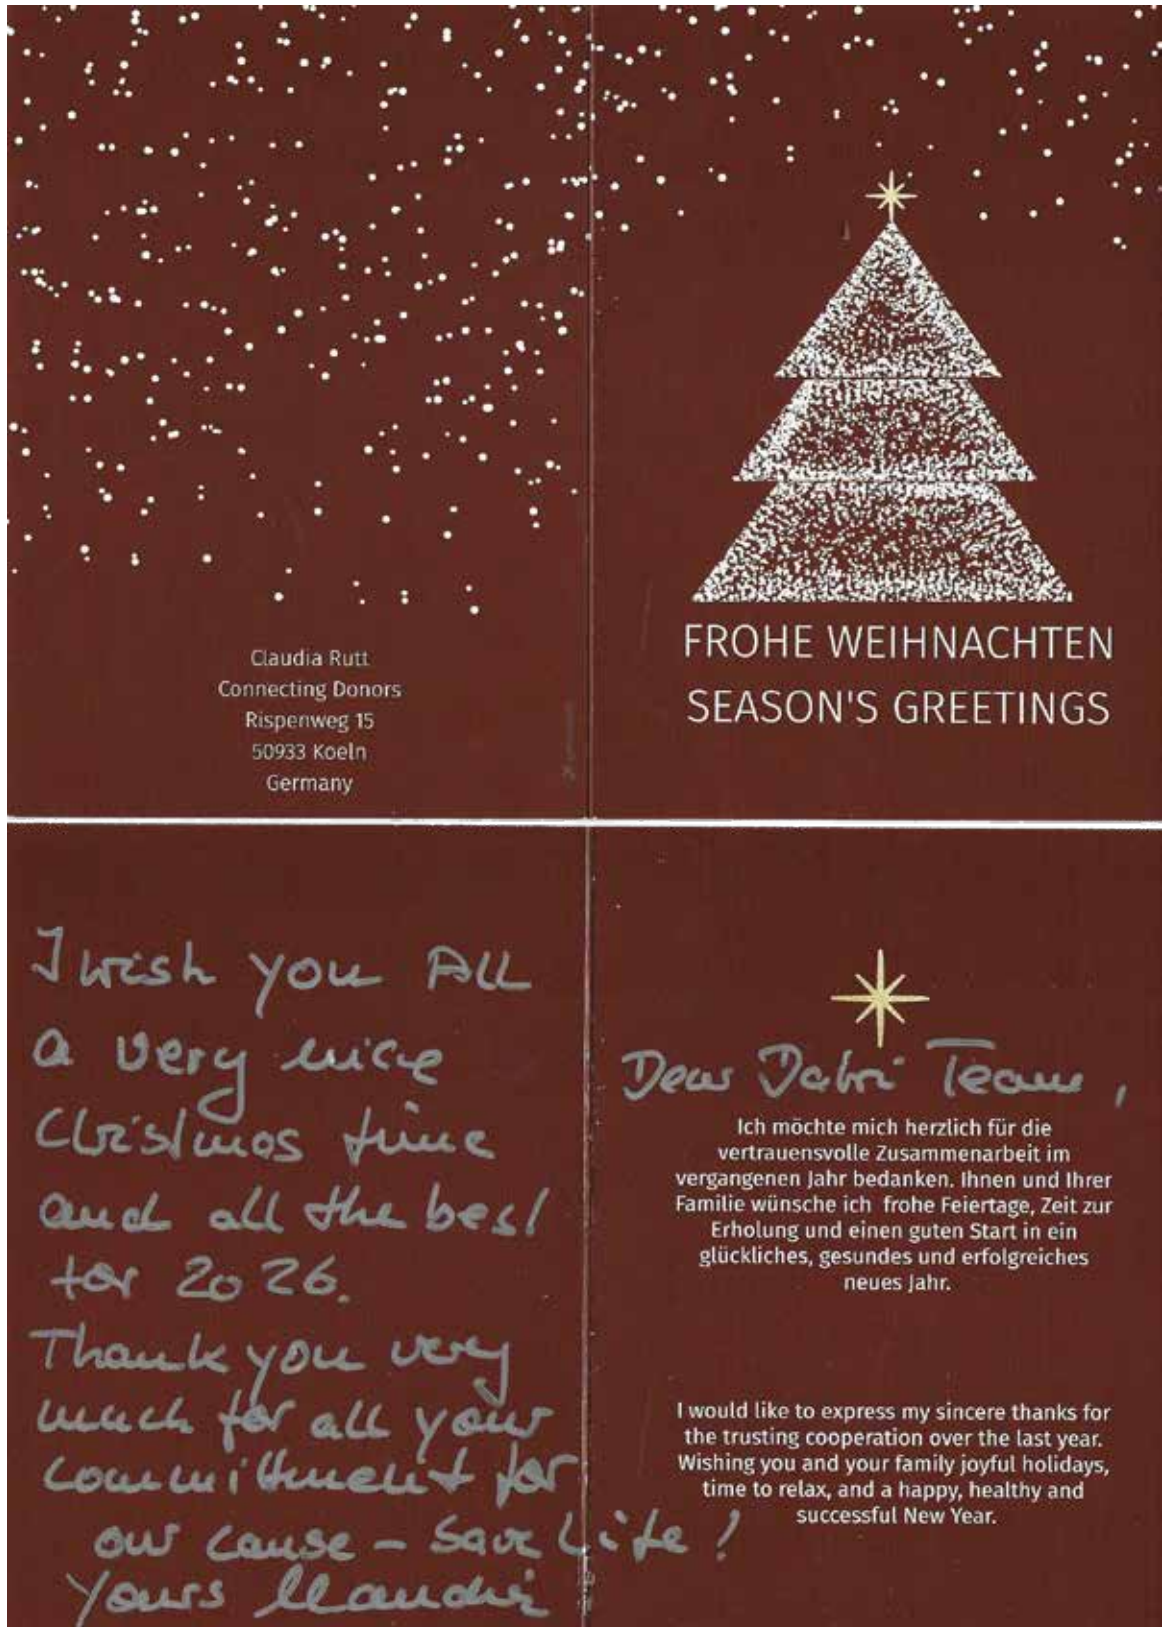 Claudia Rutt
Connecting Donors
Rispenweg 15
50933 Koeln
Germany
FROHE WEIHNACHTEN
SEASON'S GREETINGS
I wish you All
a very nice
Christmas time
and all the best
for 2026.
Thank you very
much for all your
committment for
our cause – Save Life!
Yours
Dear Team,
Ich möchte mich herzlich für die
vertrauensvolle Zusammenarbeit im
vergangenen Jahr bedanken. Ihnen und Ihrer
Familie wünsche ich frohe Feiertage, Zeit zur
Erholung und einen guten Start in ein
glückliches, gesundes und erfolgreiches
neues Jahr.
I would like to express my sincere thanks for
the trusting cooperation over the last year.
Wishing you and your family joyful holidays,
time to relax, and a happy, healthy and
successful New Year.